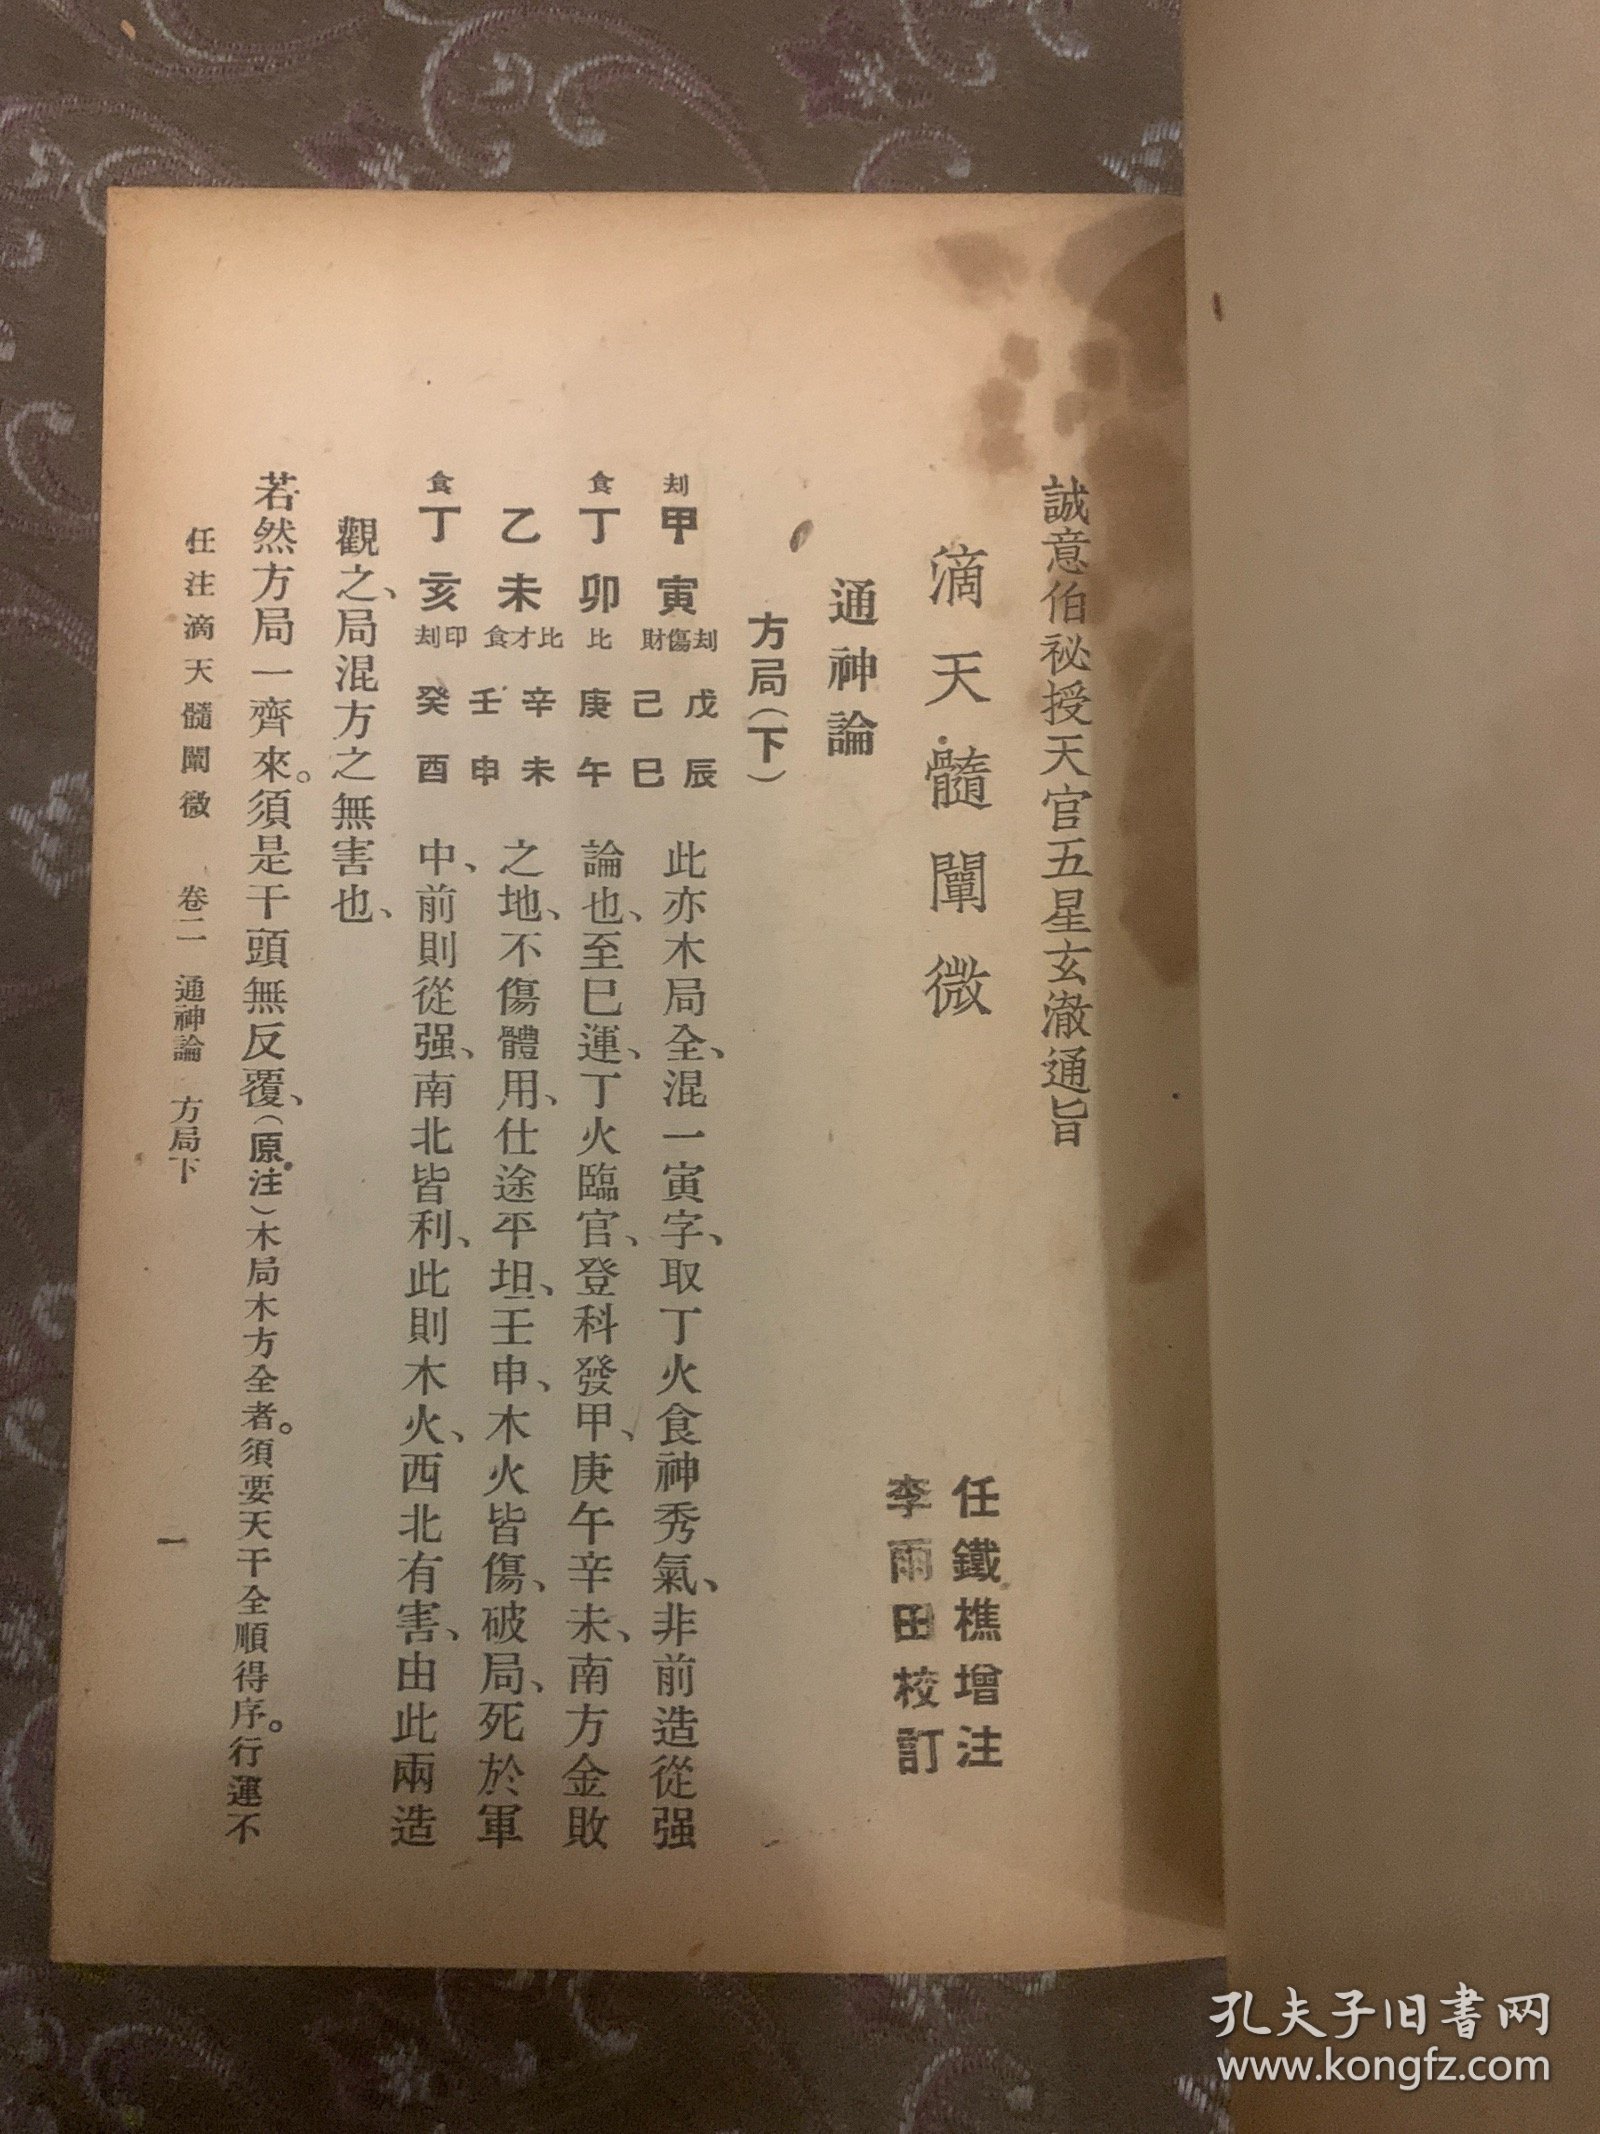 誠意伯祕授天官五星玄澈通旨
滴天髓闡微
任鐵樵增注
李雨田校訂
通神論
方局(下)
刦 食 食
甲 丁 乙 丁
寅 卯 未 亥
刦傷財 比 比才食 印刦
戊 己 庚 辛 壬 癸
辰 巳 午 未 申 酉
此亦木局全、混一寅字、取丁火食神秀氣、非前造從强
論也、至巳運、丁火臨官、登科發甲、庚午辛未、南方金敗
之地、不傷體用、仕途平坦、壬申、木火皆傷、破局、死於軍
中、前則從强、南北皆利、此則木火、西北有害、由此兩造
觀之、局混方之無害也、
若然方局一齊來。須是干頭無反覆、(原注)木局木方全者。須要天干全順得序。行運不
任注滴天髓闡微 卷二 通神論 方局下 一
孔夫子旧书网
www.kongfz.com